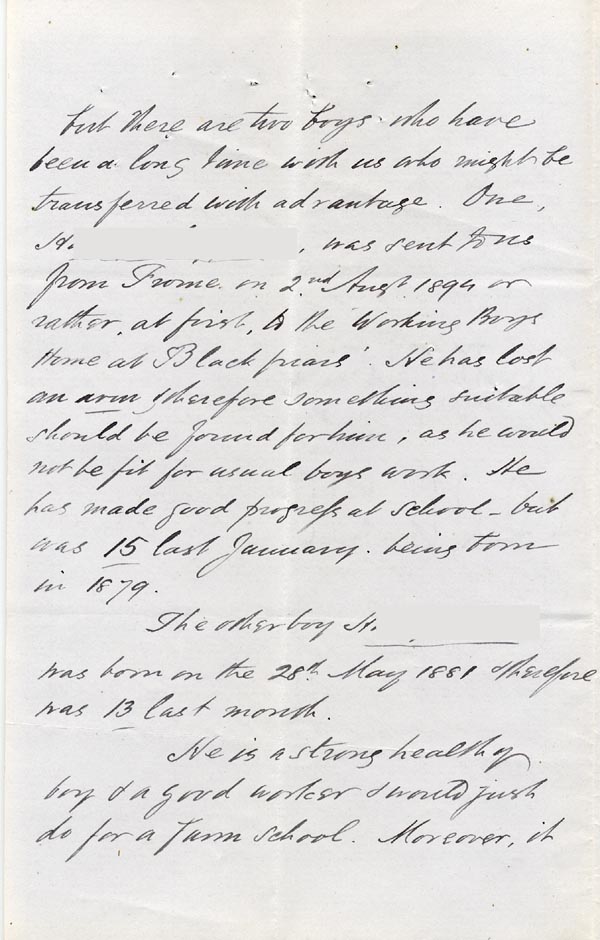 but there are two boys who have
been a long time with us who might be
transferred with advantage. One,
H. , was sent to us
from Frome on 2nd Augt 1894 or
rather, at first, to the Working Boys
Home at Blackfriars'. He has lost
an arm & therefore something suitable
should be found for him, as he would
not be fit for usual boys work. He
has made good progress at school - but
was 15 last January. being born
in 1879.
The other boy H.
was born on the 28th May 1881 & therefore
was 13 last month.
He is a strong healthy
boy & a good worker & would just
do for a Farm School. Moreover, it